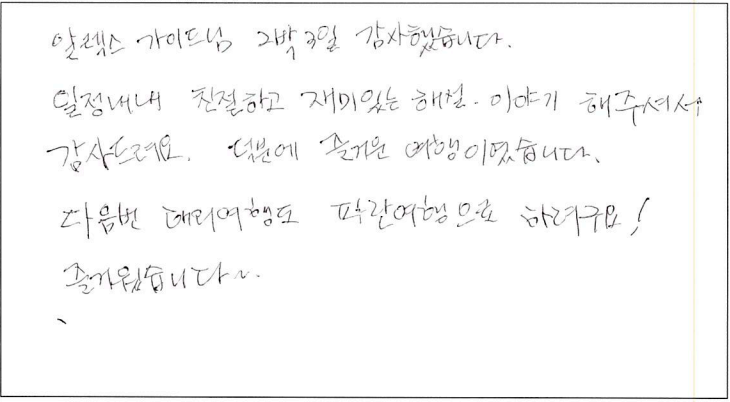 알렉스 가이드님 2박3일 감사했습니다.
일정내내 친절하고 재미있는 해설·이야기 해주셔서
감사드려요. 덕분에 즐거운 여행이었습니다.
다음번 해외여행도 파란여행으로 하려구요!
즐거웠습니다~.